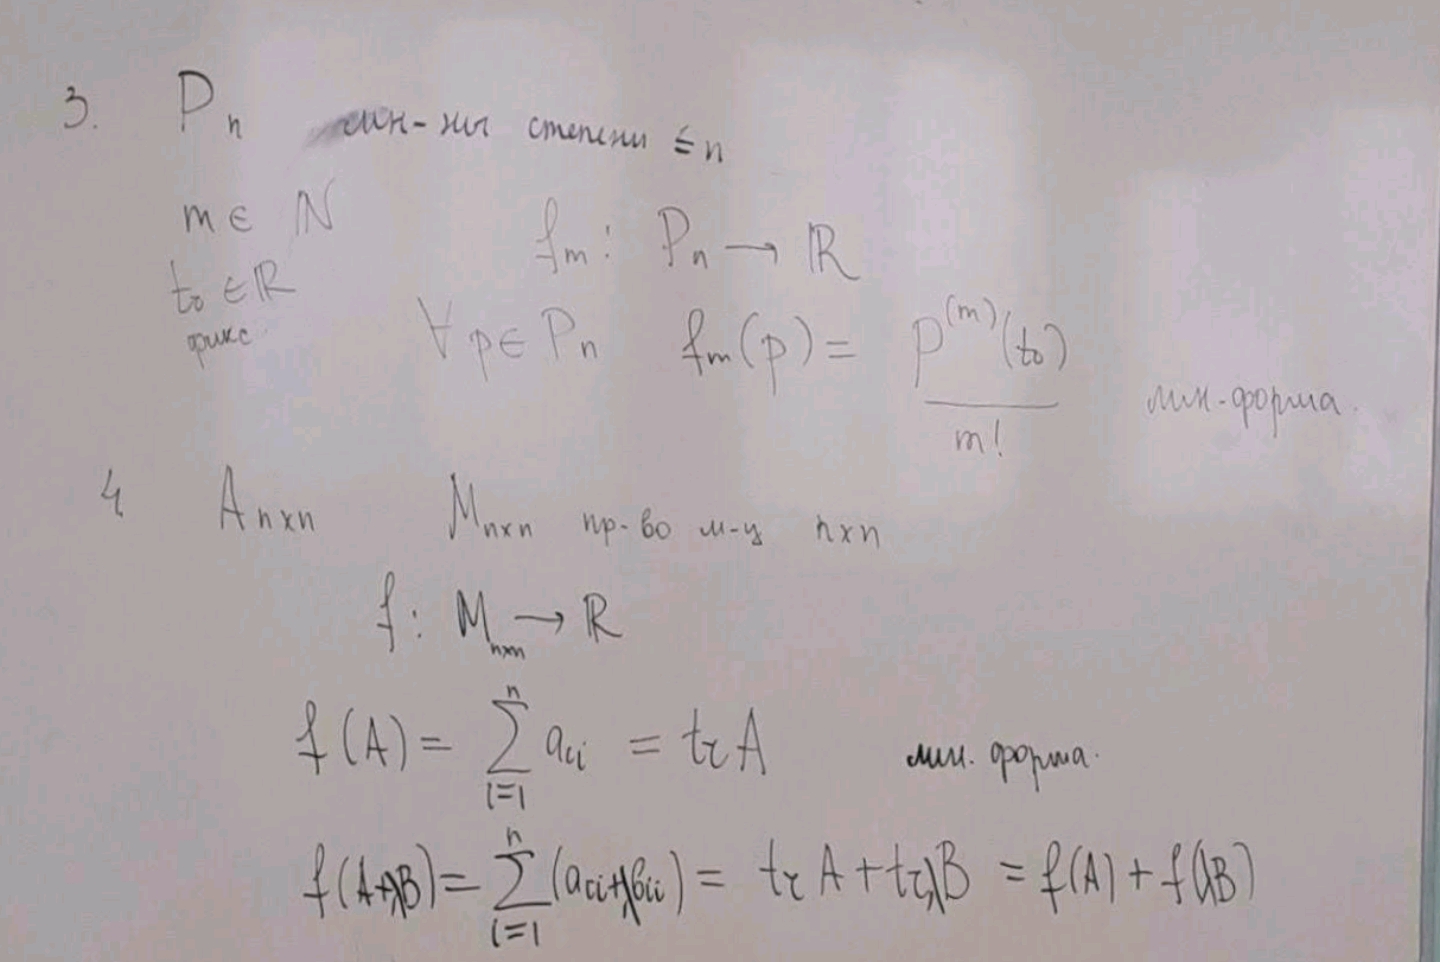 3. Pₙ мн-ны степени ≤ n
m ∈ ℕ
fₘ : Pₙ → ℝ
t₀ ∈ ℝ
фикс.
∀ p ∈ Pₙ fₘ(p) = p⁽ᵐ⁾(t₀) / m! лин. форма.
4 Aₙₓₙ Mₙₓₙ пр-во м-ц n×n
f : Mₙₓₙ → ℝ
f(A) = ∑ᵢ₌₁ⁿ aᵢᵢ = tr A лин. форма.
f(A+λB) = ∑ᵢ₌₁ⁿ (aᵢᵢ+λbᵢᵢ) = tr A + tr λB = f(A) + f(λB)